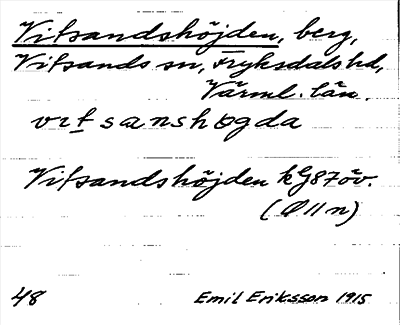 Vitsandshöjden, berg,
Vitsands sn, Fryksdals hd,
Värml. län.
vitsanshøgda
Vitsandshöjden kG87öv.
(Ø11n)
48 Emil Eriksson 1915